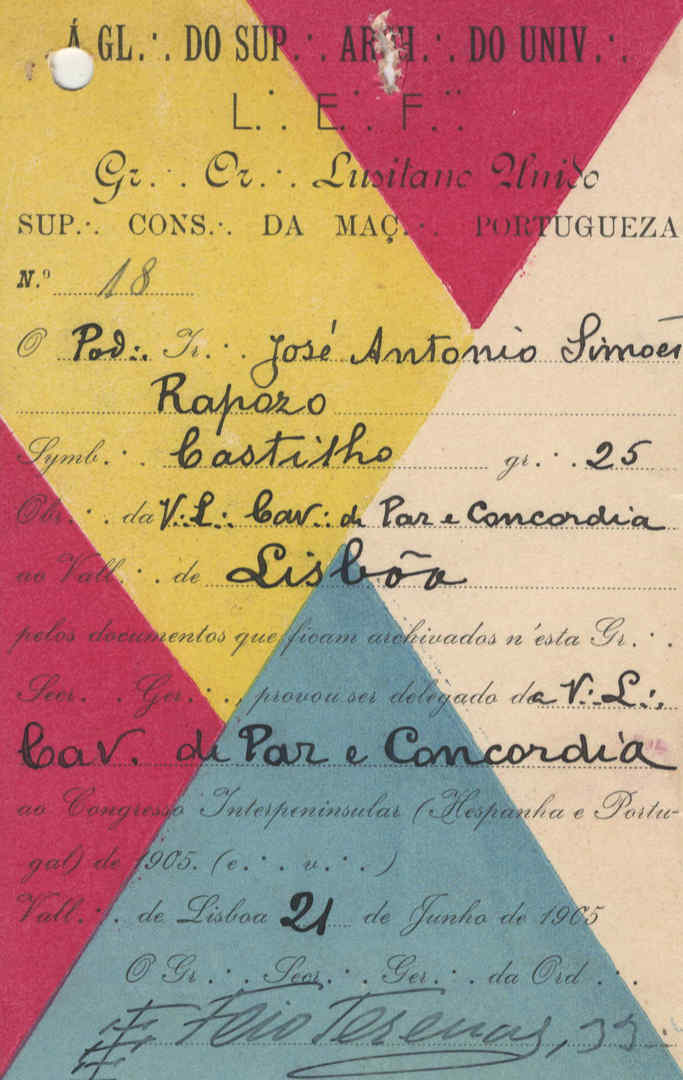 Á GL.·. DO SUP.·. ARCH.·. DO UNIV.·.
L.·. E.·. F.·.
Gr.·. Or.·. Lusitano Unido
SUP.·. CONS.·. DA MAÇ.·. PORTUGUEZA
N.º 18
O Pod.·. Ir.·. José Antonio Simões
Rapozo
Symb.·. Castilho gr.·. 25
Obr.·. da V.·. L.·. Cav.·. de Paz e Concordia
ao Vall.·. de Lisbôa
pelos documentos que ficam archivados n'esta Gr.·.
Secr.·. Ger.·., provou ser delegado da V.·. L.·.,
Cav. de Paz e Concordia
ao Congresso Interpeninsular (Hespanha e Portu-
gal) de 1905. (e.·. v.·.)
Vall.·. de Lisboa 21 de Junho de 1905
O Gr.·. Secr.·. Ger.·. da Ord.·.
Feio Terenas, 33.·.